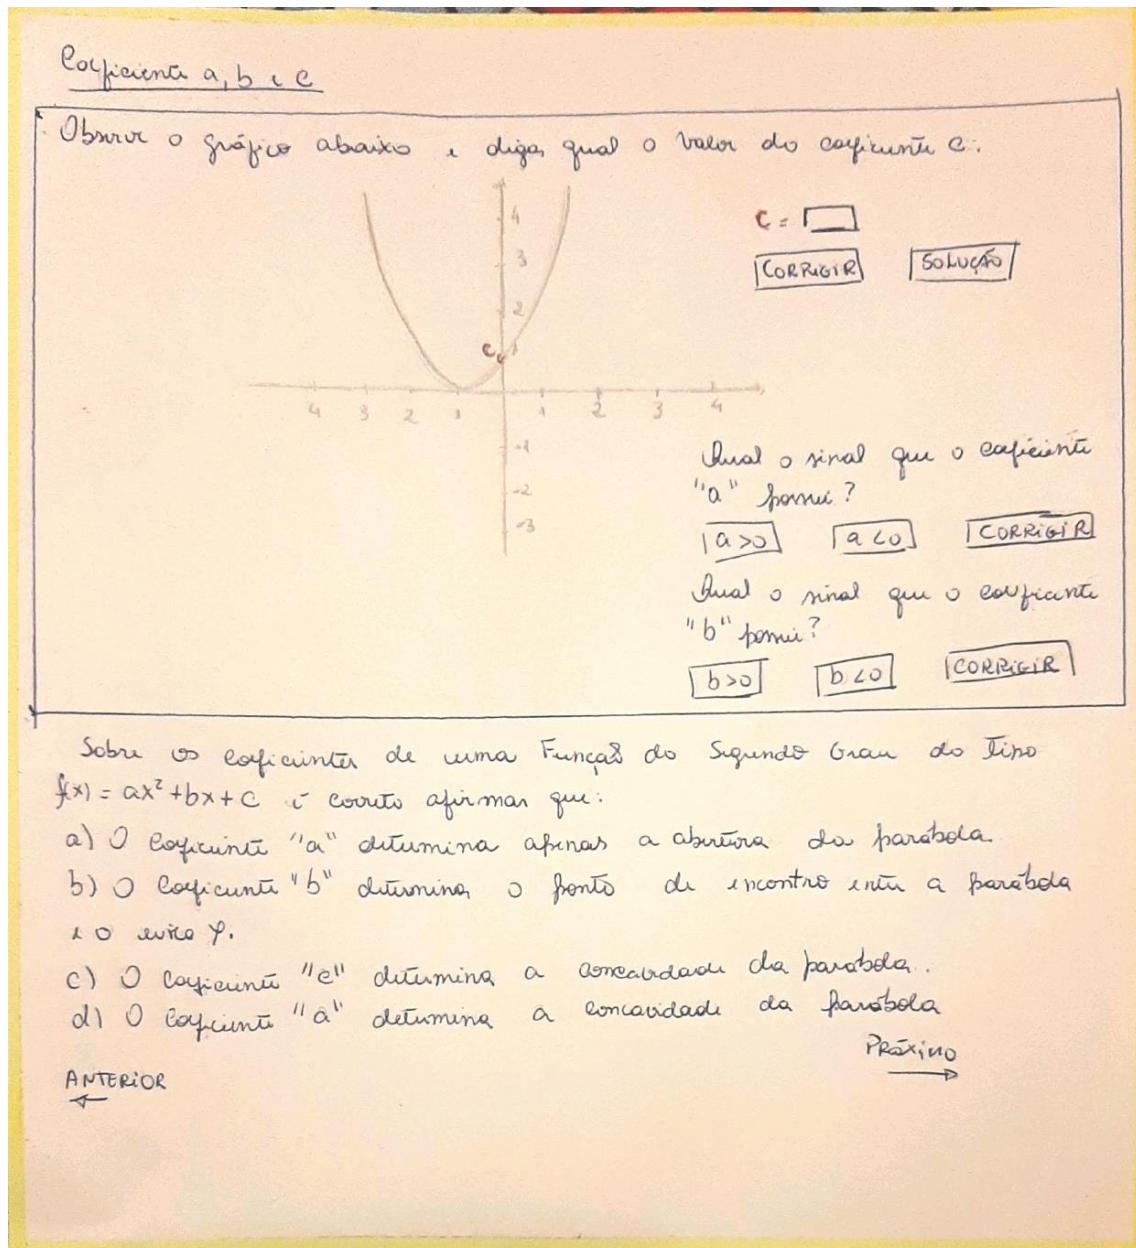 Coeficiente a, b e c
Observe o gráfico abaixo e diga, qual o valor do coeficiente c:
c =
CORRIGIR SOLUÇÃO
4
3
2
c 1
4 3 2 1 1 2 3 4
-1
-2
-3
Qual o sinal que o coeficiente
"a" possui?
a>0 a<0 CORRIGIR
Qual o sinal que o coeficiente
"b" possui?
b>0 b<0 CORRIGIR
Sobre os coeficientes de uma Função do Segundo Grau do Tipo
f(x) = ax²+bx+c é correto afirmar que:
a) O coeficiente "a" determina apenas a abertura da parábola.
b) O coeficiente "b" determina o ponto de encontro entre a parábola
e o eixo y.
c) O coeficiente "c" determina a concavidade da parábola.
d) O coeficiente "a" determina a concavidade da parábola
PRÓXIMO
ANTERIOR